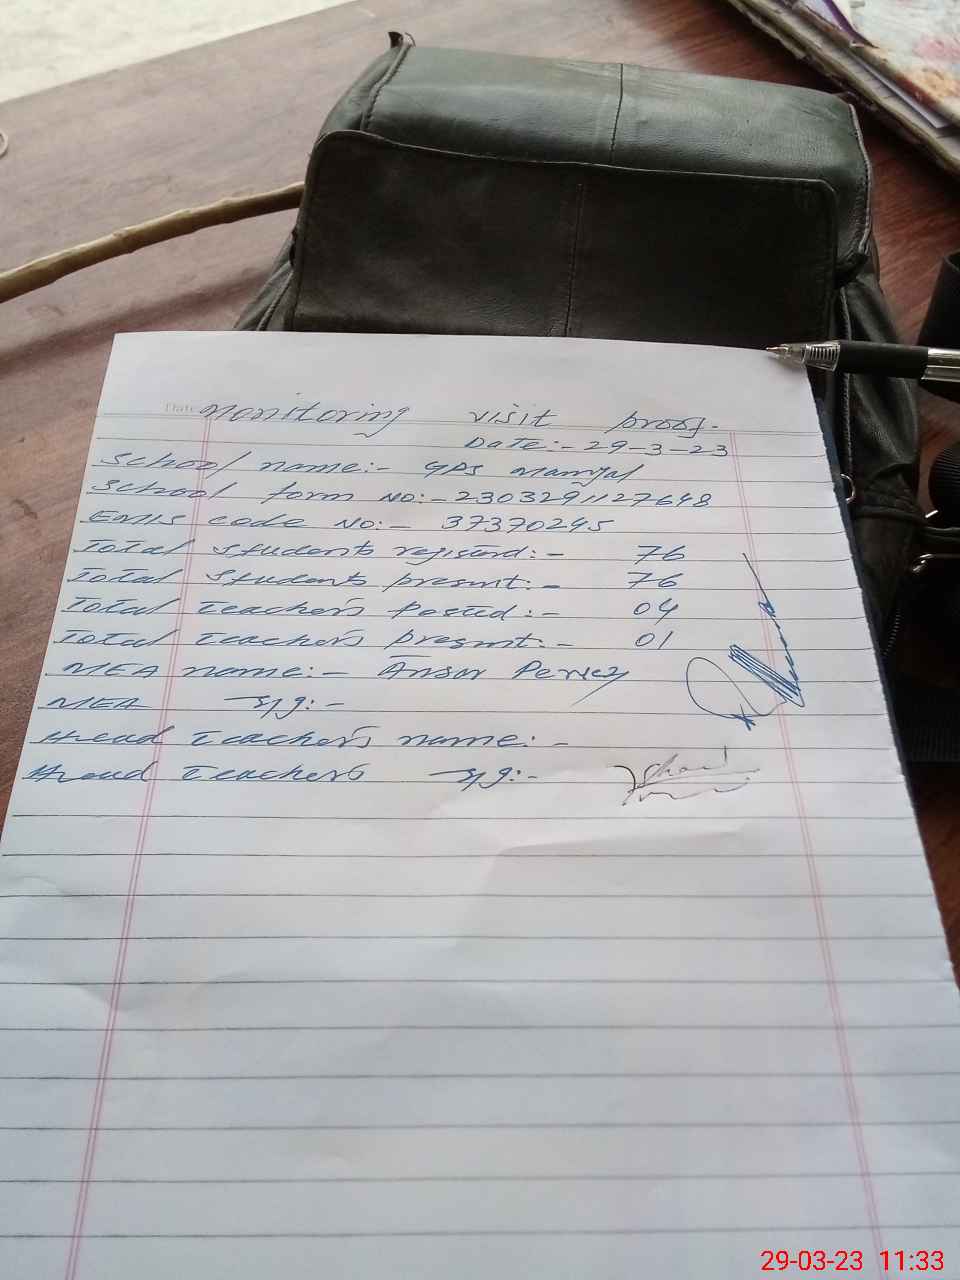 Date
Monitoring visit proof.
Date:- 29-3-23
School name:- GPS Manyal
School form No:- 2303291127648
EMIS code No:- 37370245
Total students registerd:- 76
Total students present:- 76
Total teachers Posted:- 04
Total teachers present:- 01
MEA name:- Ansar Pervez
MEA sig:-
Head teachers name:-
Head teachers sig:-
29-03-23 11:33